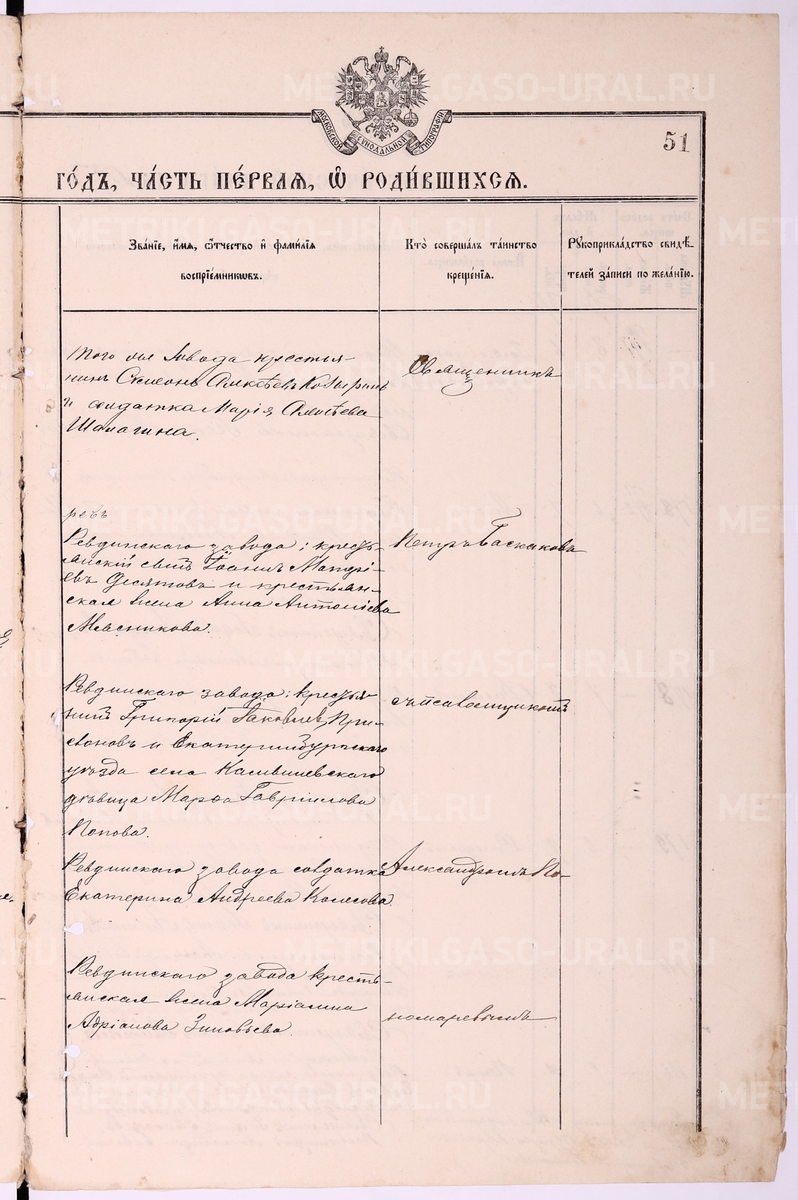 МОСКОВСКОЙ СѴНОДАЛЬНОЙ ТИПОГРАФІИ
51
ГО́ДЪ, ЧА́СТЬ ПЕ́РВАЯ, Ѽ РОДИ́ВШИХСЯ.
Зва́нїе, и́мя, ѻ҆́тчество и҆ фами́лїя
воспрїе́мникѡвъ.
Кто̀ соверша́лъ та́инство
креще́нїя.
Рꙋкоприкла́дство свидѣ́-
телей за́писи по жела́нїю.
того же завода крестья-
нинъ Симеонъ Алексѣевъ Кобыринъ
и солдатка Марія Алексѣева
Шалагина.
Священникъ
Ревдинскаго завода: кресть-
янскій сынъ Іоаннъ Матфі-
евъ Десятовъ и крестьян-
ская жена Анна Антоніева
Мясникова.
Петръ Баскаковъ
Ревдинскаго завода: кресть-
нинъ Григорій Іаковлевъ
и Екатеринбургскаго
уѣзда села
дѣвица Марѳа Гавріилова
Попова.
съ псаломщикомъ
Ревдинскаго завода солдатка
Екатерина Андреева Колесова
Александромъ По-
Ревдинскаго завода кресть-
янская жена Маріанна
Адріанова Зиновьева.
номаревымъ
METRIKI.GASO-URAL.RU